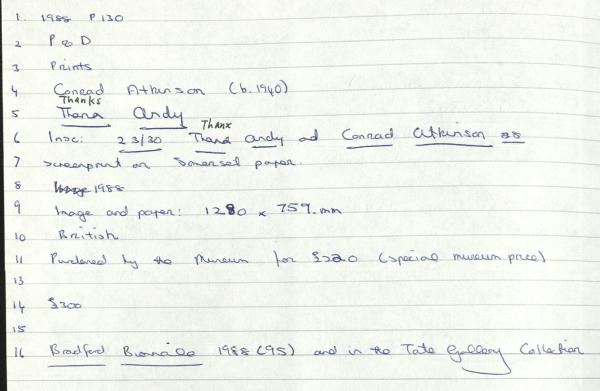 1. 1988 P 130
2 P & D
3 Prints
4 Conrad Atkinson (b. 1940)
Thanks
5 Andy
Thanx
6 Insc: 23/30 Andy ad Conrad Atkinson 88
7 Screenprint on Somerset paper.
8 1988
9 Image and paper: 1280 x 759. mm
10 British
11 Purchased by the Museum for (special museum price)
13
14 £300
15
16 Bradford Biennale 1988 (95) and in the Tate Gallery Collection